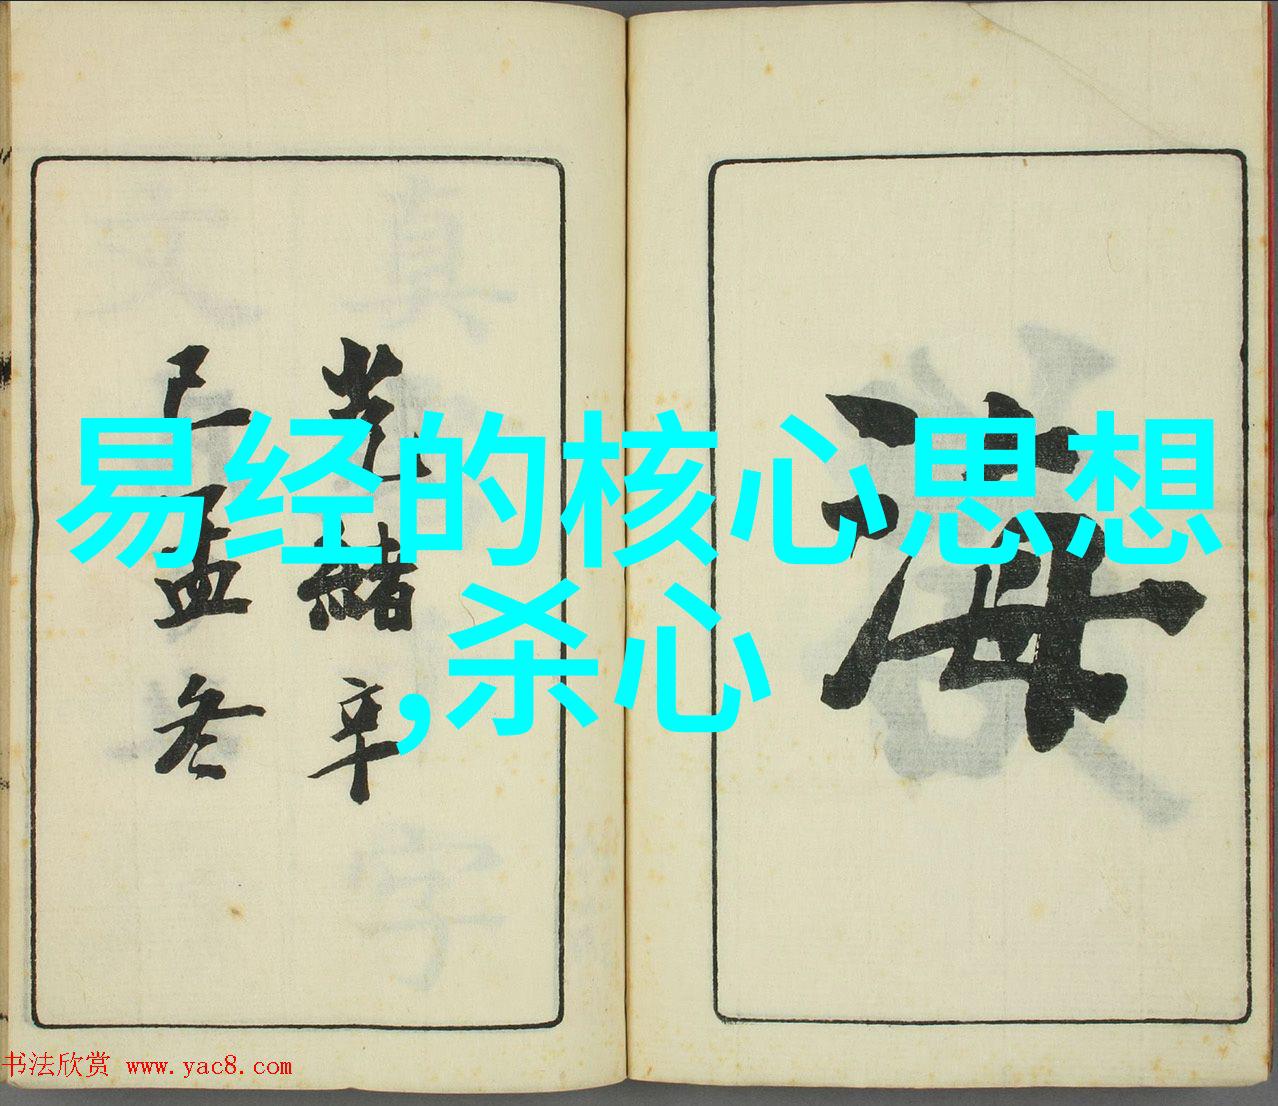 易经的核心思想
,杀心
海
光緒辛
巳孟冬
书法欣赏 www.yac8.com